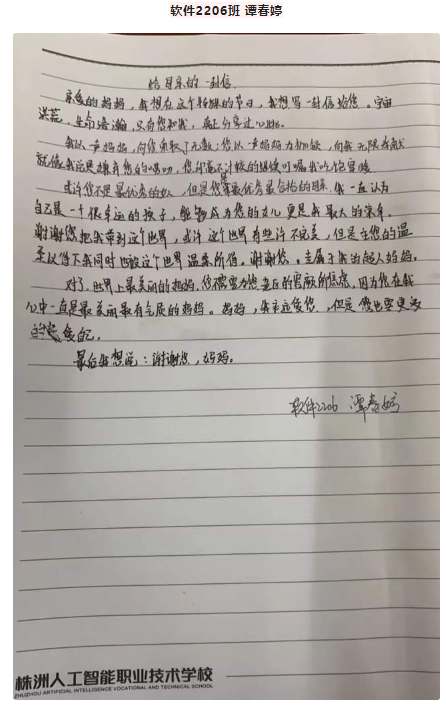 软件2206班 谭春婷
给母亲的一封信
亲爱的妈妈,我想在这个特殊的节日,我想写一封信给您。宇宙
洪荒,生命浩瀚,只有您和我,真正分享过心跳。
我以一声妈妈,向您索取了无数;您以一声妈妈为枷锁,向我无限奉献
或许您不是最优秀的女人,但是您是最优秀最合格的母亲。我一直认为
自己是一个很幸运的孩子,能够成为您的女儿更是我最大的荣幸。
谢谢您把我带到这个世界,或许这个世界有些许不完美,但是在您的温
柔以待下我同时也被这个世界温柔所待。谢谢您,专属于我的超人妈妈。
对了,世界上最美丽的妈妈,您不需要为您逝去的容颜所焦虑,因为您在我
心中一直是最美丽最有气质的妈妈。妈妈,我永远爱您,但是您也要更多
的爱自己。
最后我想说:谢谢您,妈妈。
软件2206 谭春婷
株洲人工智能职业技术学校
ZHUZHOU ARTIFICIAL INTELLIGENCE VOCATIONAL AND TECHNICAL SCHOOL